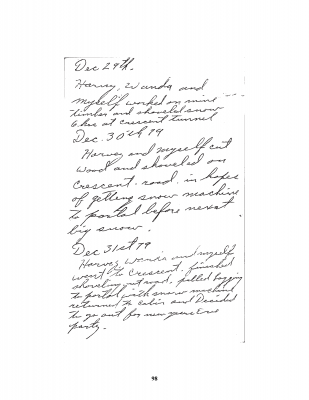 Dec 29th.
Harvey, Wanda and
myself worked on mine
timber and shoveled snow
6 hrs at crescent tunnel
Dec. 30th 79
Harvey and myself cut
wood and shoveled on
Crescent road in hopes
of getting snow machine
to portal before next
big snow.
Dec 31st 79
Harvey Wanda and myself
went to Crescent, finished
shoveling out road, pulled
to portal with snow machine
returned to cabin and Decided
to go out for new years Eve
party.
98